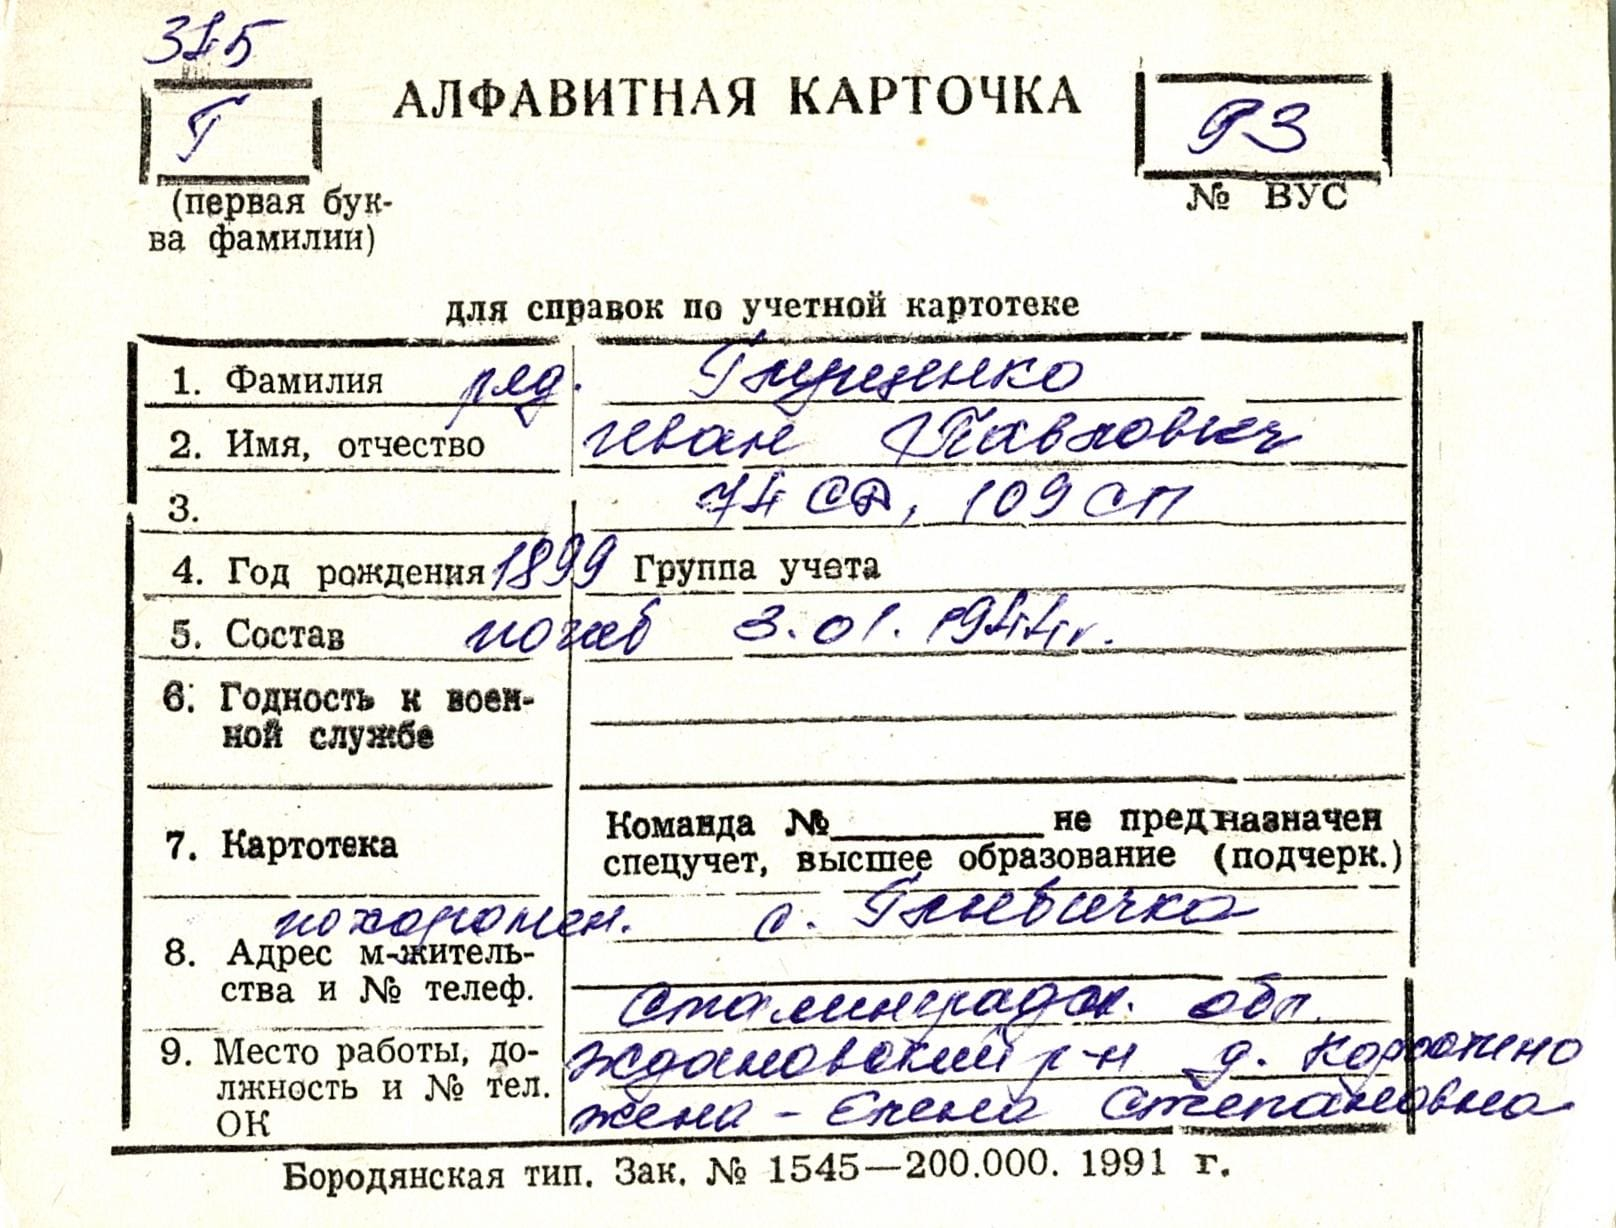 375
Г
АЛФАВИТНАЯ КАРТОЧКА
93
(первая бук-
ва фамилии)
№ ВУС
для справок по учетной картотеке
1. Фамилия ряд. Глущенко
2. Имя, отчество Иван Павлович
3. 74 СД, 109 СП
4. Год рождения 1899 Группа учета
5. Состав погиб 3.01.1944г.
6. Годность к воен-
ной службе
7. Картотека
Команда № не предназначен
спецучет, высшее образование (подчерк.)
похоронен. с.
8. Адрес м-житель-
ства и № телеф.
Сталинградск. обл.
9. Место работы, до-
лжность и № тел.
ОК
Ждановский р-н д.
жена - Елена Степановна
Бородянская тип. Зак. № 1545—200.000. 1991 г.